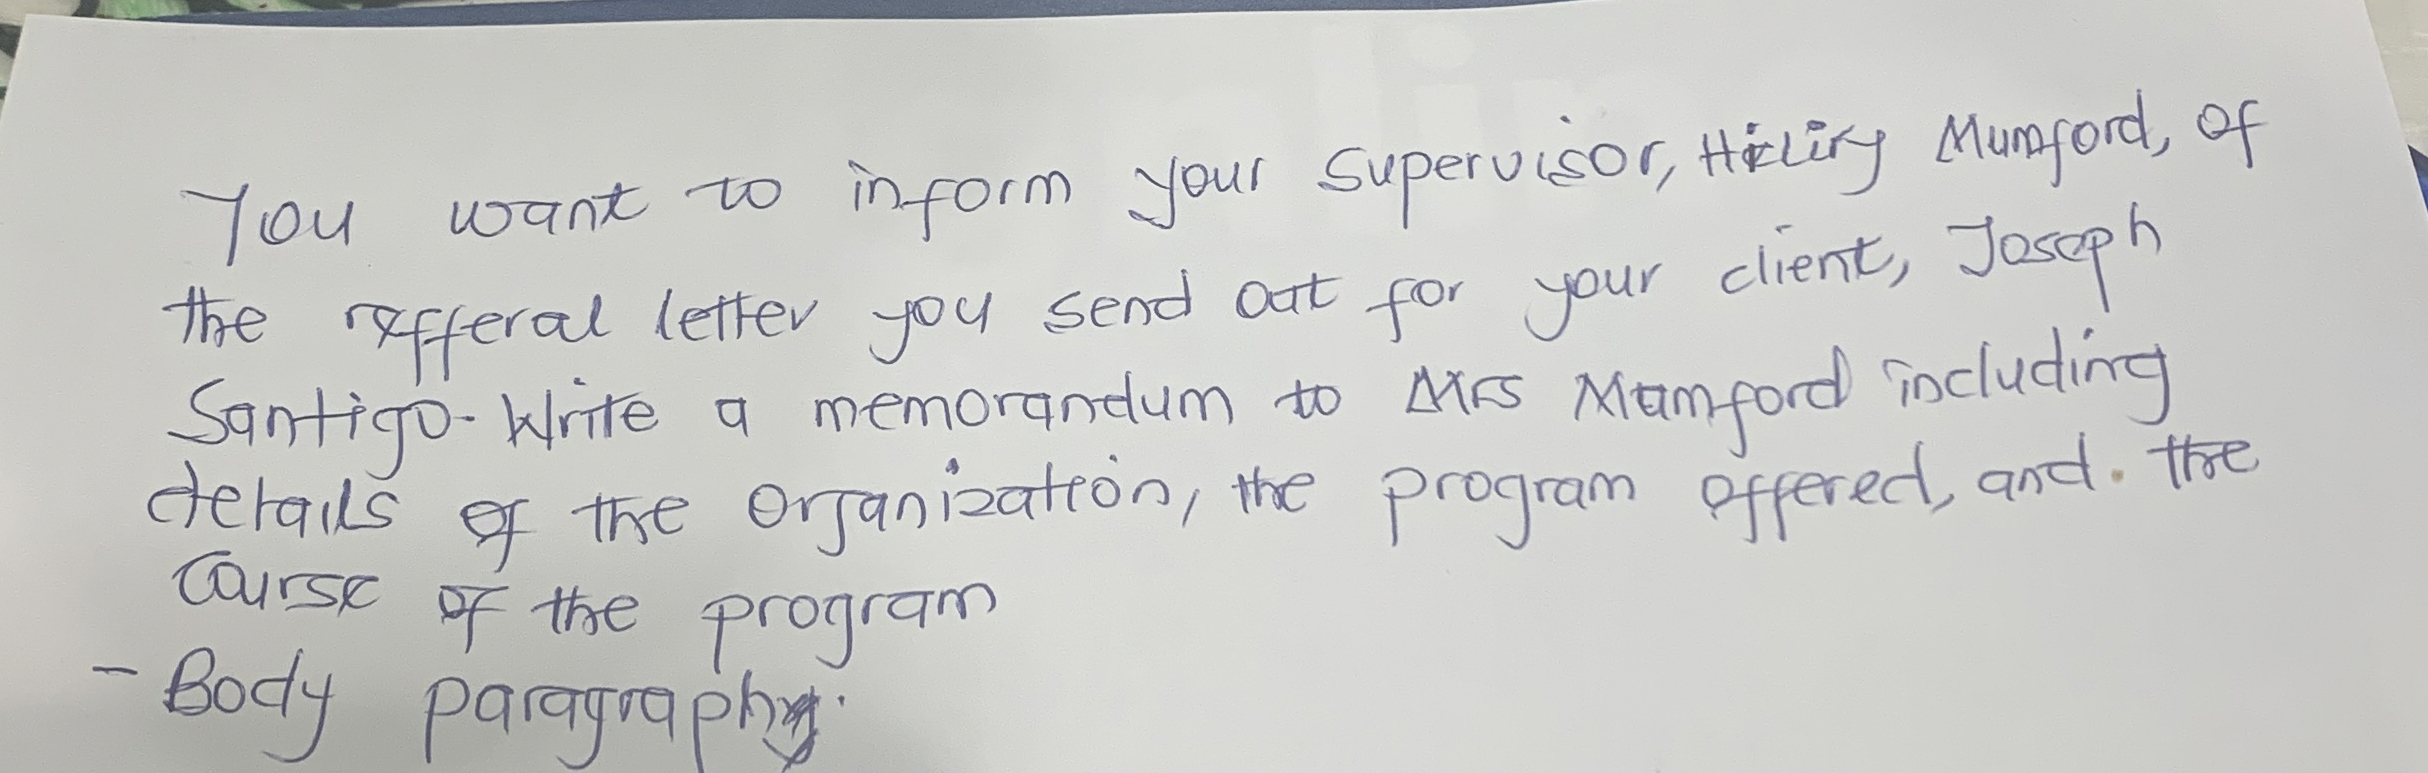 You want to inform your supervisor, Hiliry Mumford, of
the refferal letter you send out for your client, Joseph
Santigo. Write a memorandum to Mrs Mumford including
details of the organization, the program offered, and. the
course of the program
- Body paragraph